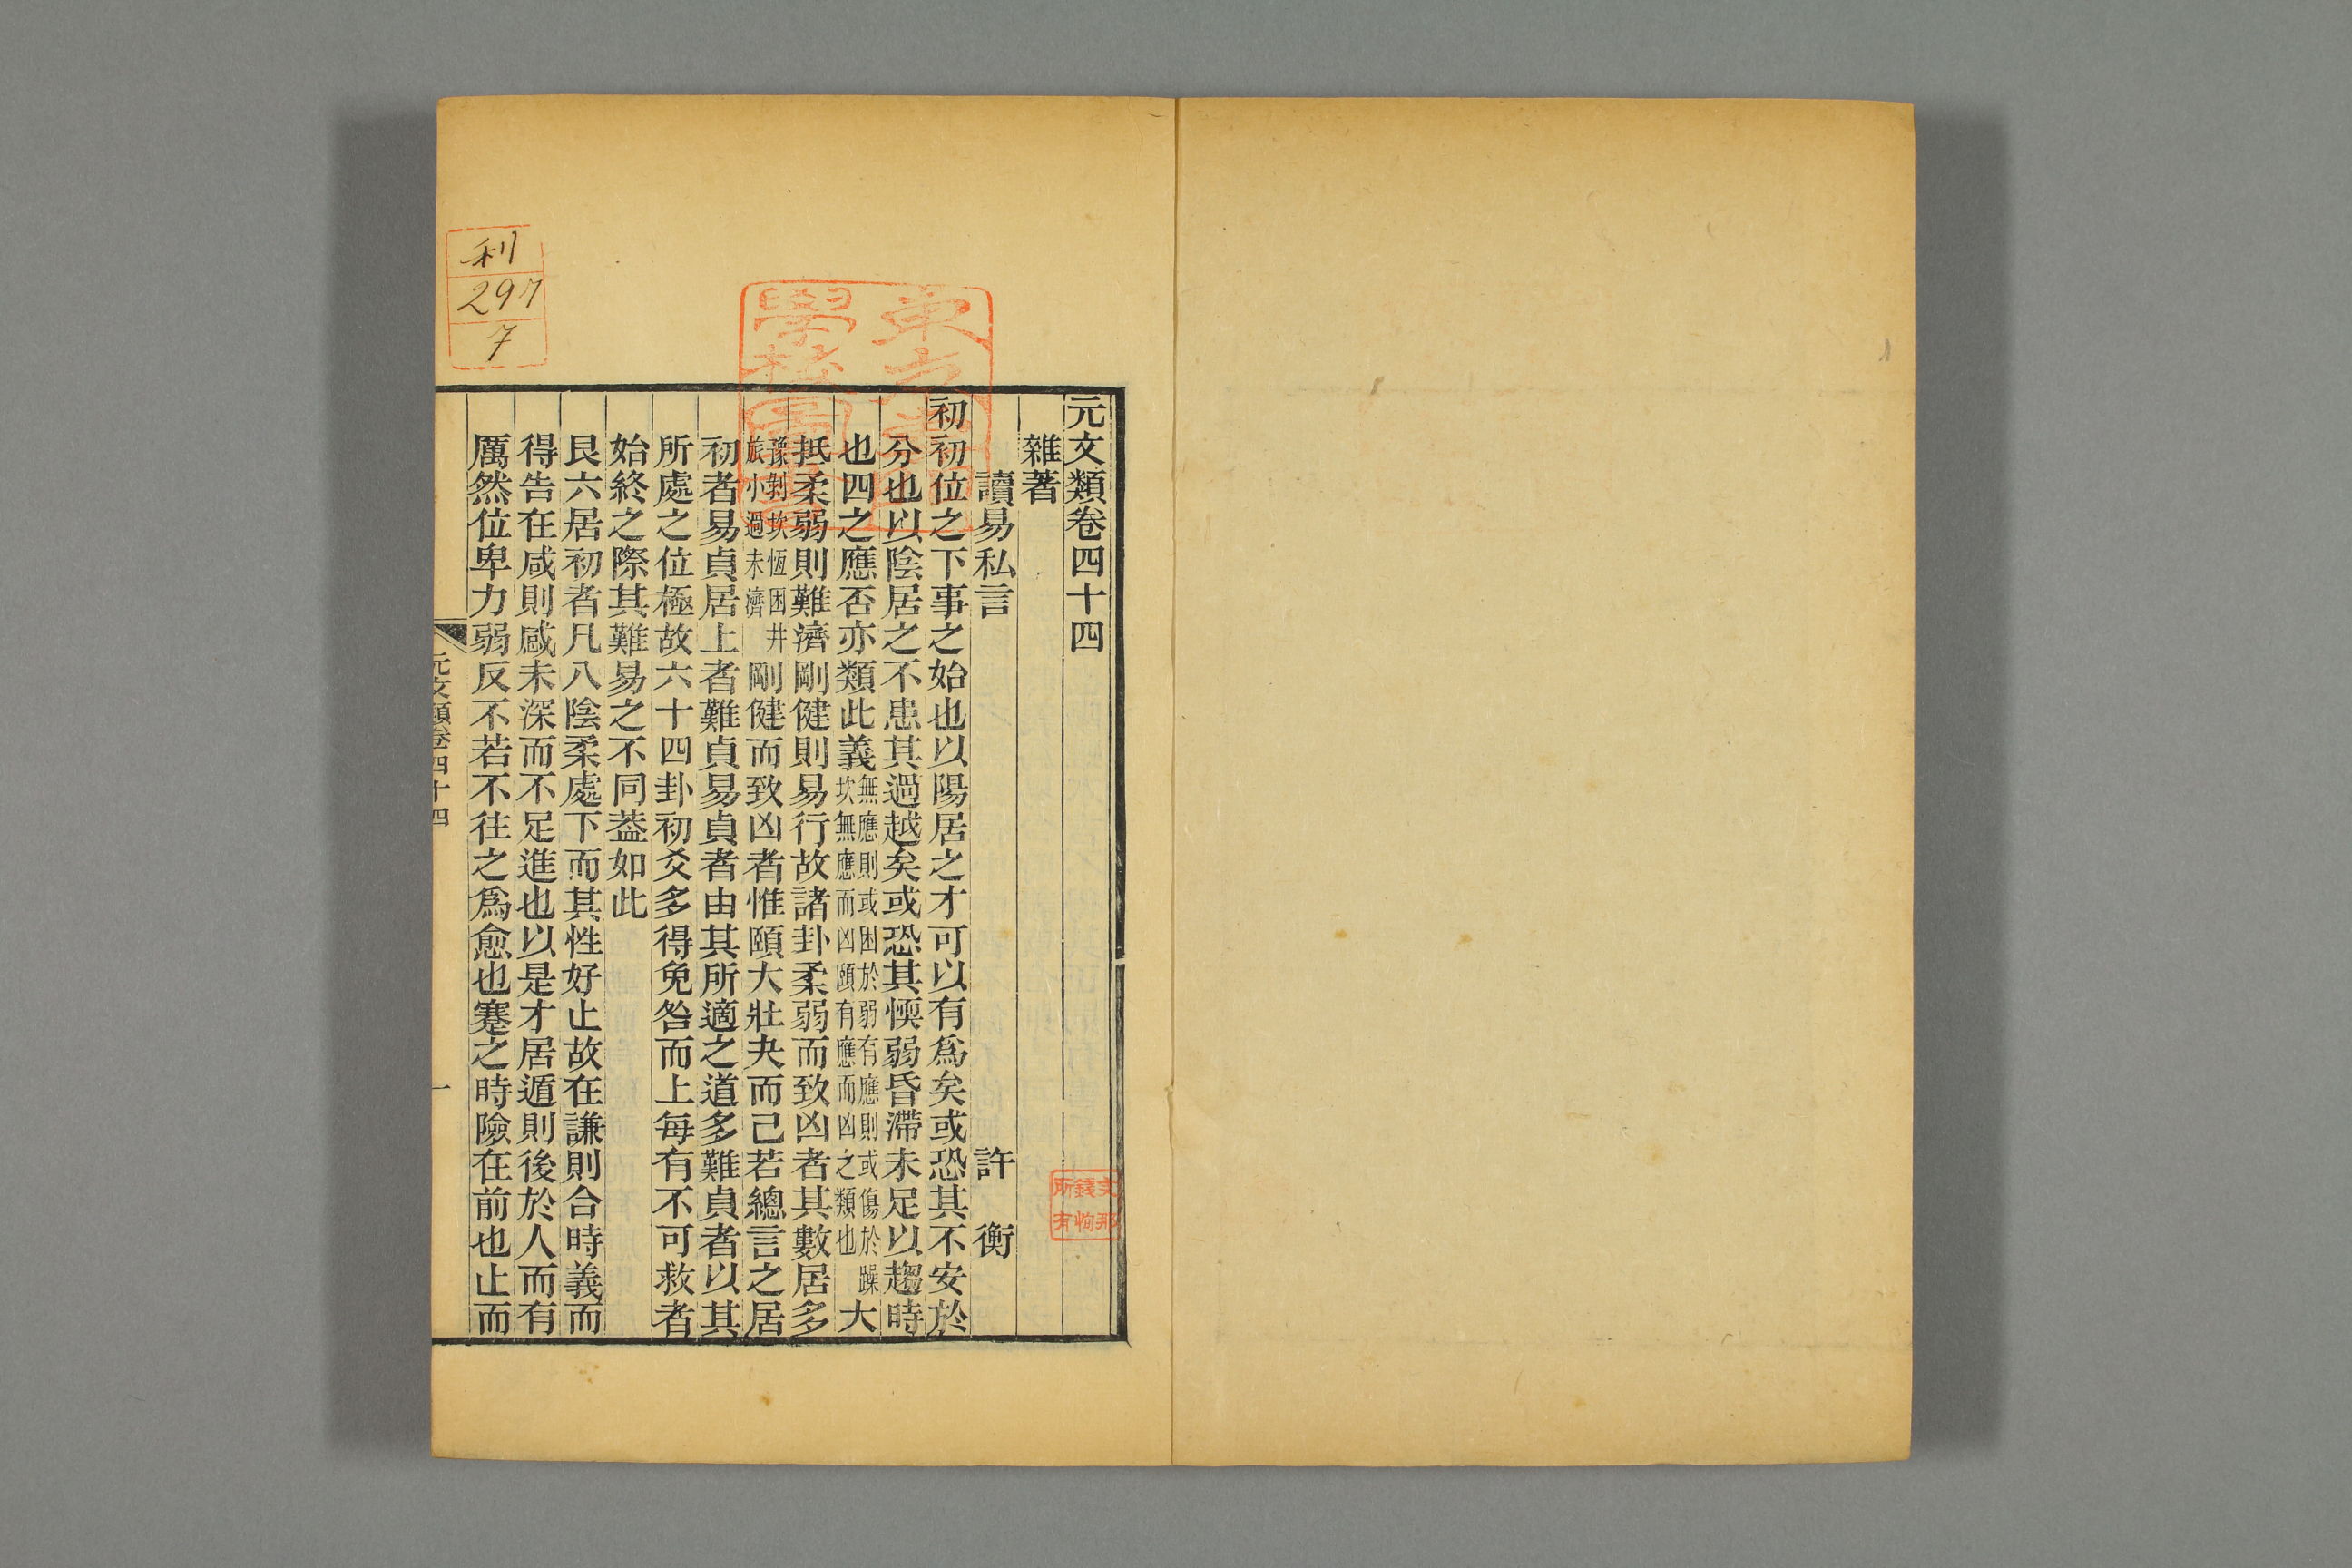 元文類卷四十四
雜著
讀易私言 許 衡
初初位之下事之始也以陽居之才可以有爲矣或恐其不安於
分也以陰居之不患其過越矣或恐其愞弱昏滯未足以趨時
也四之應否亦類此義無應則或困於弱有應則或傷於躁坎無應而凶頤有應而凶之類也大
抵柔弱則難濟剛健則易行故諸卦柔弱而致凶者其數居多
豫剝坎恆困井旅小過未濟剛健而致凶者惟頤大壯夬而己若總言之居
初者易貞居上者難貞易貞者由其所適之道多難貞者以其
所處之位極故六十四卦初爻多得免咎而上每有不可救者
始終之際其難易之不同葢如此
艮六居初者凡八陰柔處下而其性好止故在謙則合時義而
得告在咸則感未深而不足進也以是才居遁則後於人而有
厲然位卑力弱反不若不往之爲愈也蹇之時險在前也止而
元文類卷四十四 一
利
297
7
文那
錢恂
所有